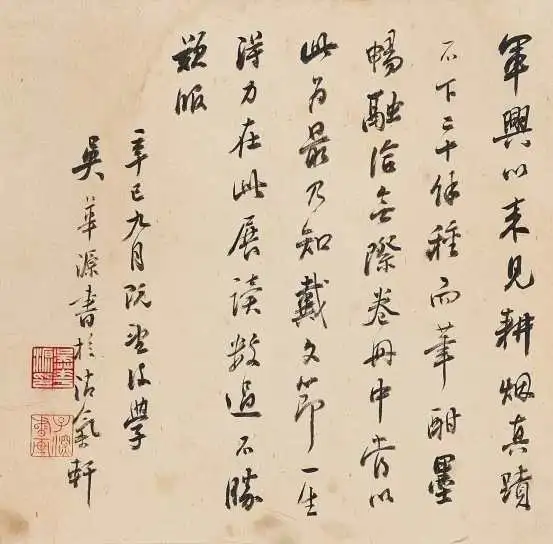 軍興以来見耕烟真蹟
不下二十餘種而筆酣墨
暢融洽無際卷冊中當以
此為最乃知戴文節一生
得力在此展读数過不勝
歎服
辛巳九月既望後學
吴華源書於沽氣軒